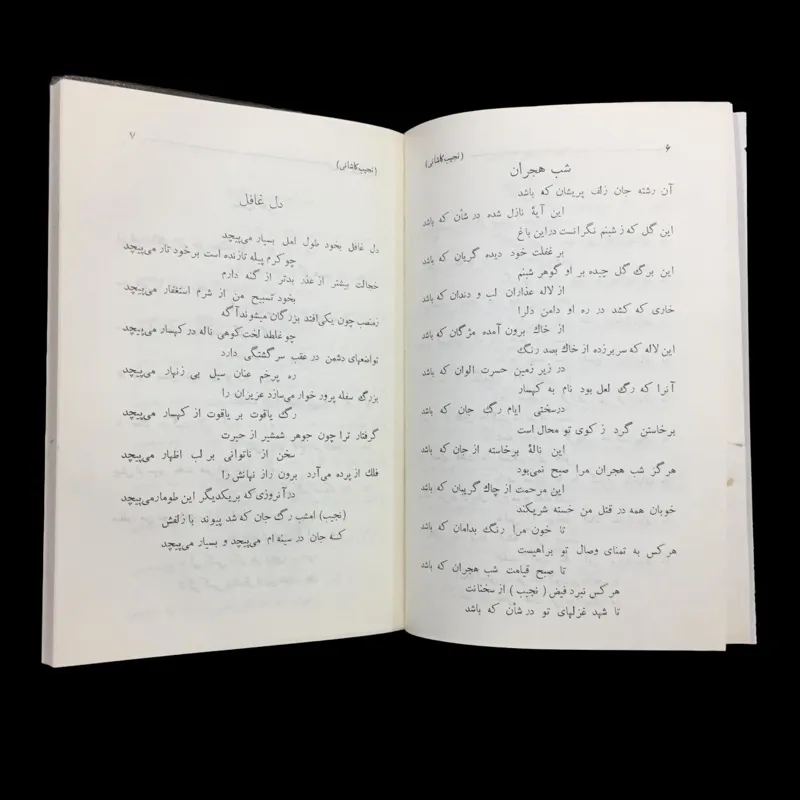 ۶
(نجیب کاشانی)
شب هجران
آن رشته جان زلف پریشان که باشد
این آیهٔ نازل شده در شأن که باشد
این گل که ز شبنم نگرانست در این باغ
بر غفلت خود دیده گریان که باشد
این برگ گل چیده بر او گوهر شبنم
از لاله عذاران لب و دندان که باشد
خاری که کشد در ره او دامن دلرا
از خاك برون آمده مژگان که باشد
این لاله که سر برزده از خاك بصد رنگ
در زیر زمین حسرت الوان که باشد
آنرا که رگ لعل بود نام به کهسار
درسختی ایام رگ جان که باشد
برخاستن گرد ز کوی تو محال است
این نالهٔ برخاسته از جان که باشد
هرگز شب هجران مرا صبح نمی‌بود
این مرحمت از چاك گریبان که باشد
خوبان همه در قتل من خسته شریکند
تا خون مرا رنگ بدامان که باشد
هر کس به تمنای وصال تو براهیست
تا صبح قیامت شب هجران که باشد
هر کس نبرد فیض ( نجیب ) از سخنانت
تا شهد غزلهای تو در شأن که باشد
۷
(نجیب کاشانی)
دل غافل
دل غافل بخود طول امل بسیار می‌پیچد
چو کرم پیله تازنده است برخود تار می‌پیچد
خجالت بیشتر از عذر بدتر از گنه دارم
بخود تسبیح من از شرم استغفار می‌پیچد
زمنصب چون یکی افتد بزرگان میشوند آگه
چو غلطد لخت کوهی ناله در کهسار می‌پیچد
تواضعهای دشمن در عقب سرگشتگی دارد
ره پرخم عنان سیل بی زنهار می‌پیچد
بزرگ سفله پرور خوار می‌سازد عزیزان را
رگ یاقوت بر یاقوت از کهسار می‌پیچد
گرفتار ترا چون جوهر شمشیر از حیرت
سخن از ناتوانی بر لب اظهار می‌پیچد
فلك از پرده می‌آرد برون راز نهانش را
در آنروزی که بر یکدیگر این طومار می‌پیچد
(نجیب) امشب رگ جان که شد پیوند با زلفش
که جان در سینه ام می‌پیچد و بسیار می‌پیچد